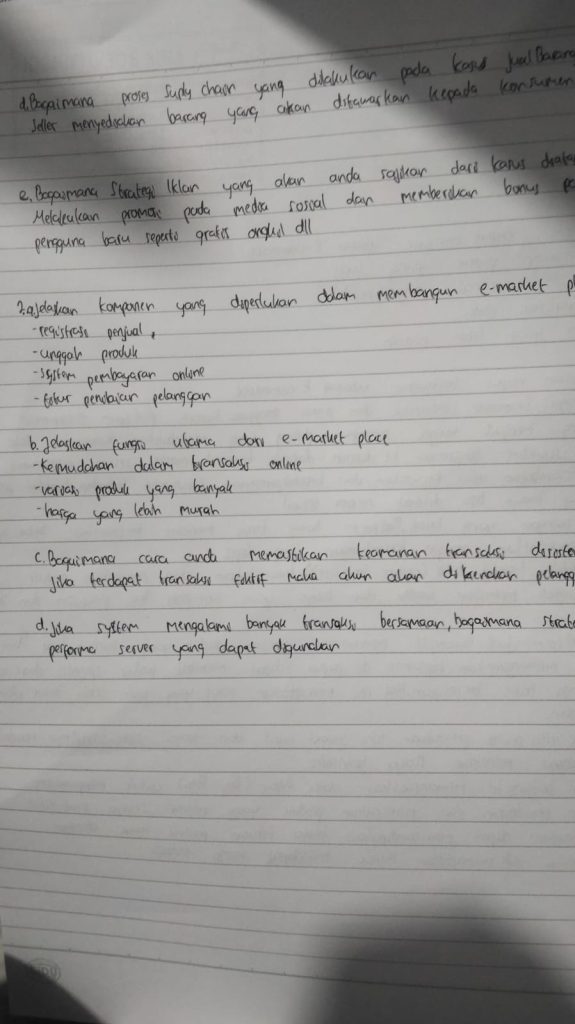 d. Bagaimana proses Suply chain yang dilakukan pada kasus Jual Barang
Seller menyediakan barang yang akan ditawarkan kepada konsumen
e. Bagaimana Strategi Iklan yang akan anda sajikan dari kasus diatas
Melakukan promosi pada media sosial dan memberikan bonus
pengguna baru seperti gratis ongkir dll
2.a Jelaskan komponen yang diperlukan dalam membangun e-market
-registrasi penjual,
-unggah produk
-system pembayaran online
-fitur penilaian pelanggan
b. Jelaskan fungsi utama dari e-market place
-Kemudahan dalam transaksi online
-variasi produk yang banyak
-harga yang lebih murah
c. Bagaimana cara anda memastikan keamanan transaksi
Jika terdapat transaksi fiktif maka akun akan dikenakan
d. Jika system mengalami banyak transaksi bersamaan, bagaimana
performa server yang dapat digunakan